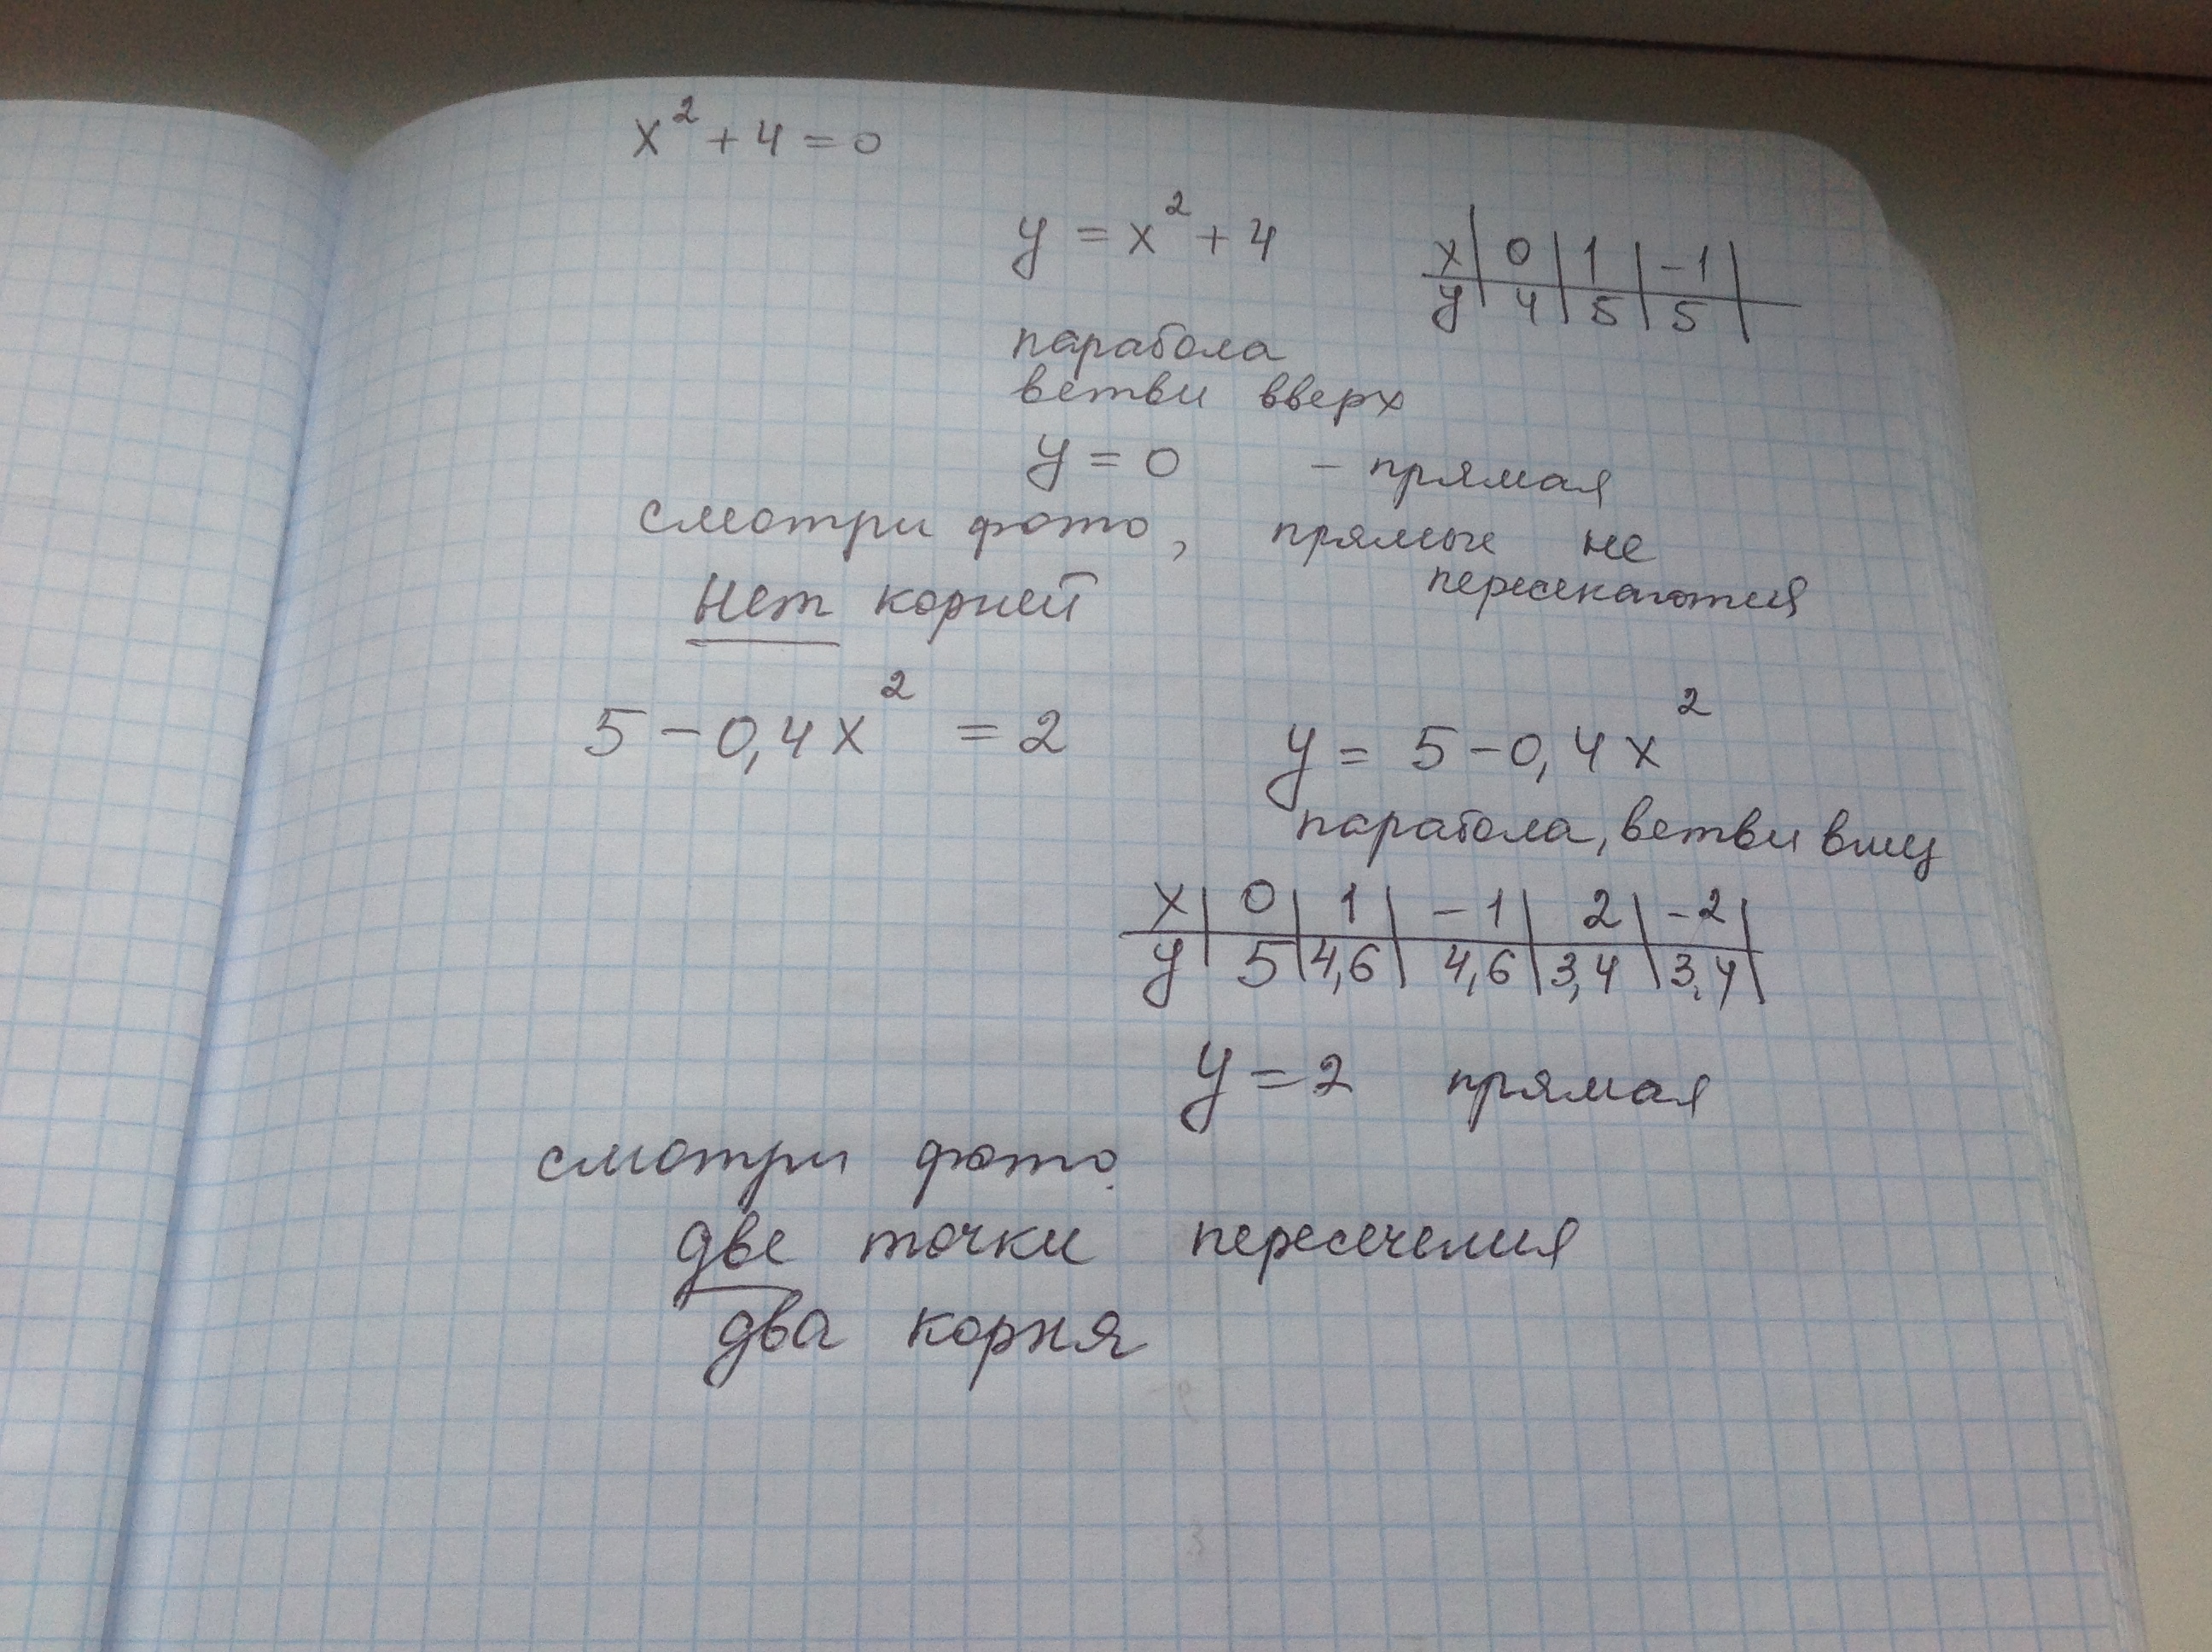 x² + 4 = 0
y = x² + 4
x | 0 | 1 | -1 |
y | 4 | 5 | 5 |
парабола
ветви вверх
y = 0 - прямая
смотри фото, прямые не
пересекаются
Нет корней
5 - 0,4x² = 2
y = 5 - 0,4x²
парабола, ветви вниз
x | 0 | 1 | -1 | 2 | -2 |
y | 5 | 4,6 | 4,6 | 3,4 | 3,4 |
y = 2 прямая
смотри фото.
две точки пересечения
два корня